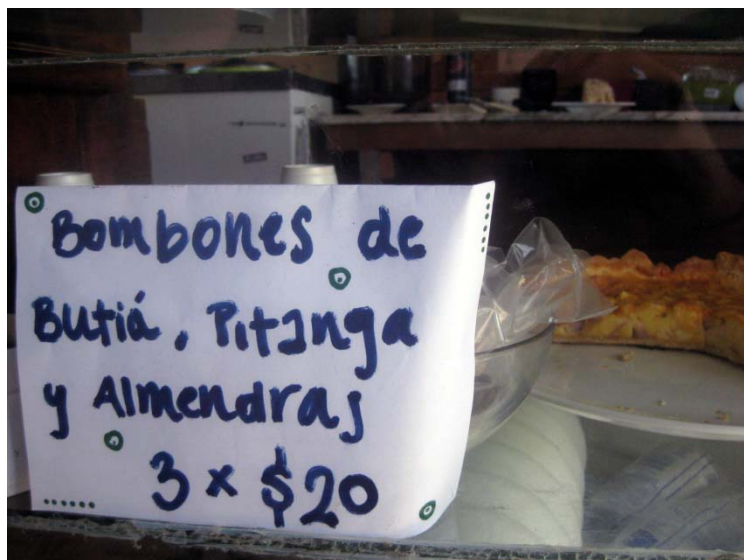 Bombones de
Butiá, Pitanga
y Almendras
3 x $20